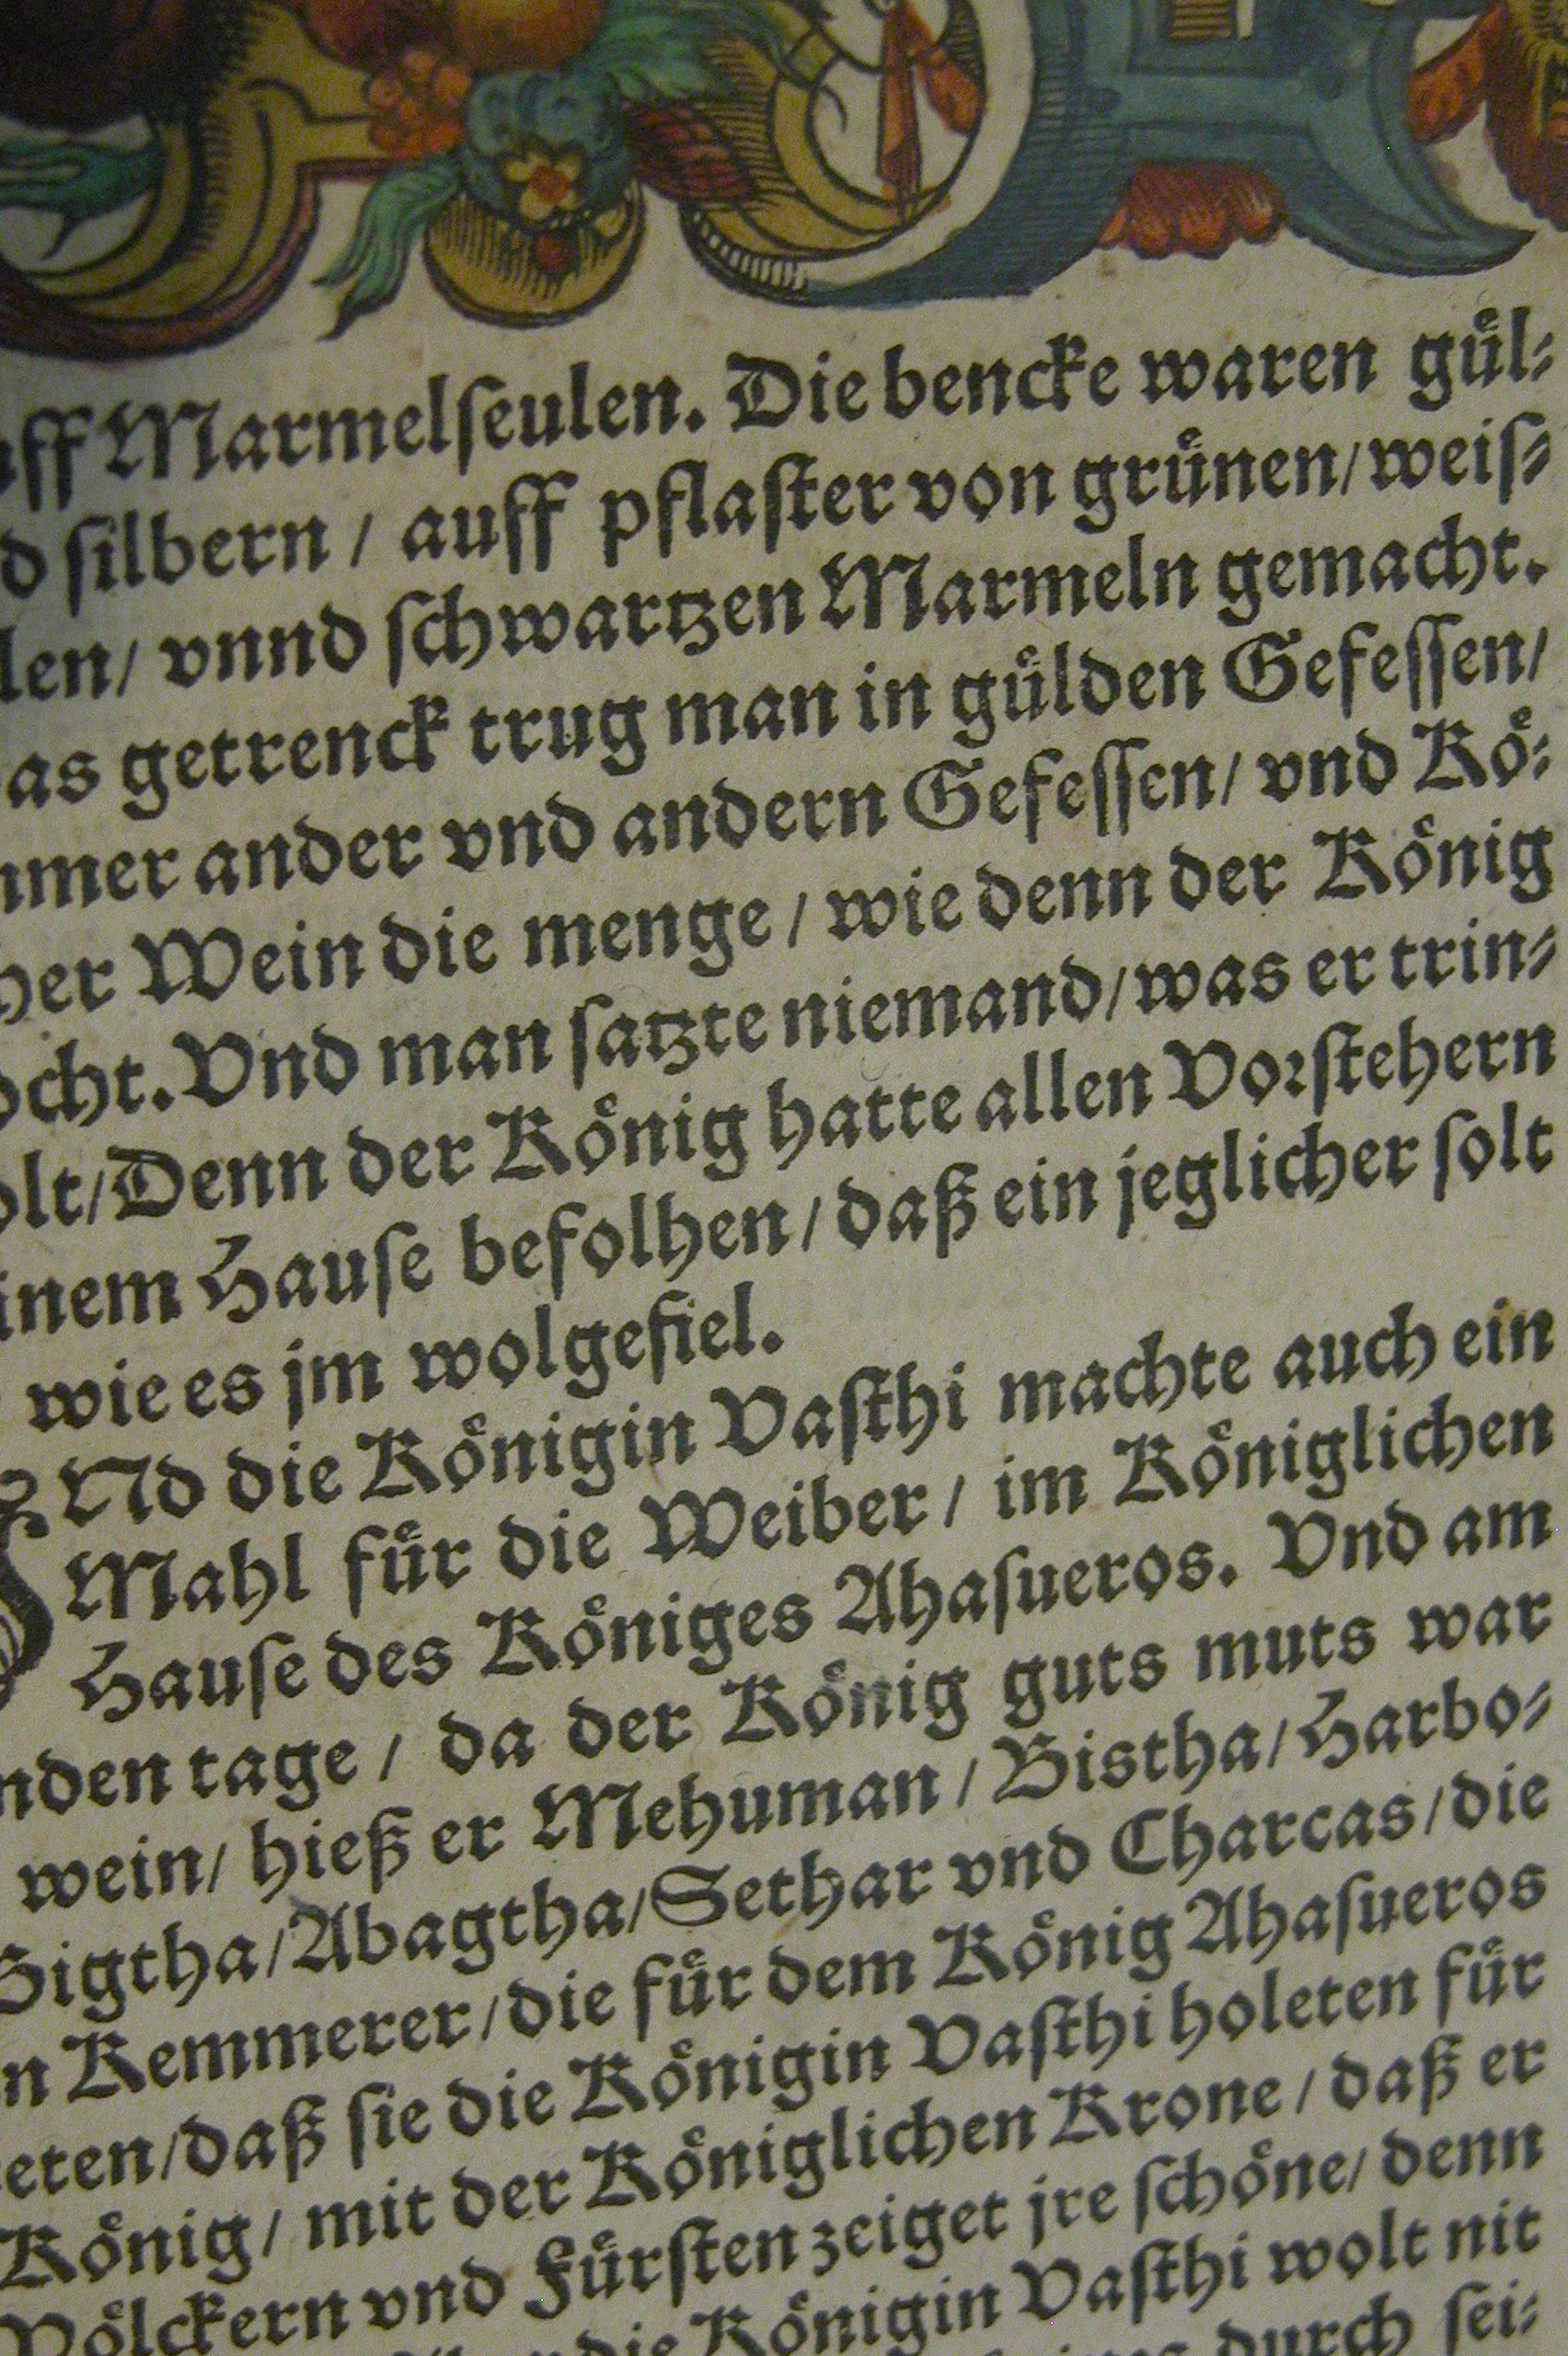 uff Marmelſeulen. Die bencke waren guͤl⸗
d ſilbern / auff pflaſter von gruͤnen / weiſ⸗
len / vnnd ſchwartzen Marmeln gemacht.
as getrenck trug man in guͤlden Gefeſſen /
mmer ander vnd andern Gefeſſen / vnd Koͤ⸗
her Wein die menge / wie denn der Koͤnig
ocht. Vnd man ſatzte niemand / was er trin⸗
olt / Denn der Koͤnig hatte allen Vorſtehern
inem Hauſe befolhen / daß ein jeglicher ſolt
wie es jm wolgefiel.
VNd die Koͤnigin Vaſthi machte auch ein
Mahl fuͤr die Weiber / im Koͤniglichen
Hauſe des Koͤniges Ahaſueros. Vnd am
nden tage / da der Koͤnig guts muts war
wein / hieß er Mehuman / Bistha / Harbo⸗
Bigtha / Abagtha / Sethar vnd Charcas / die
n Kemmerer / die fuͤr dem Koͤnig Ahaſueros
eten / daß ſie die Koͤnigin Vaſthi holeten fuͤr
Koͤnig / mit der Koͤniglichen Krone / daß er
Voͤlckern vnd Fuͤrſten zeiget jre ſchoͤne / denn
die Koͤnigin Vaſthi wolt nit
durch ſei⸗